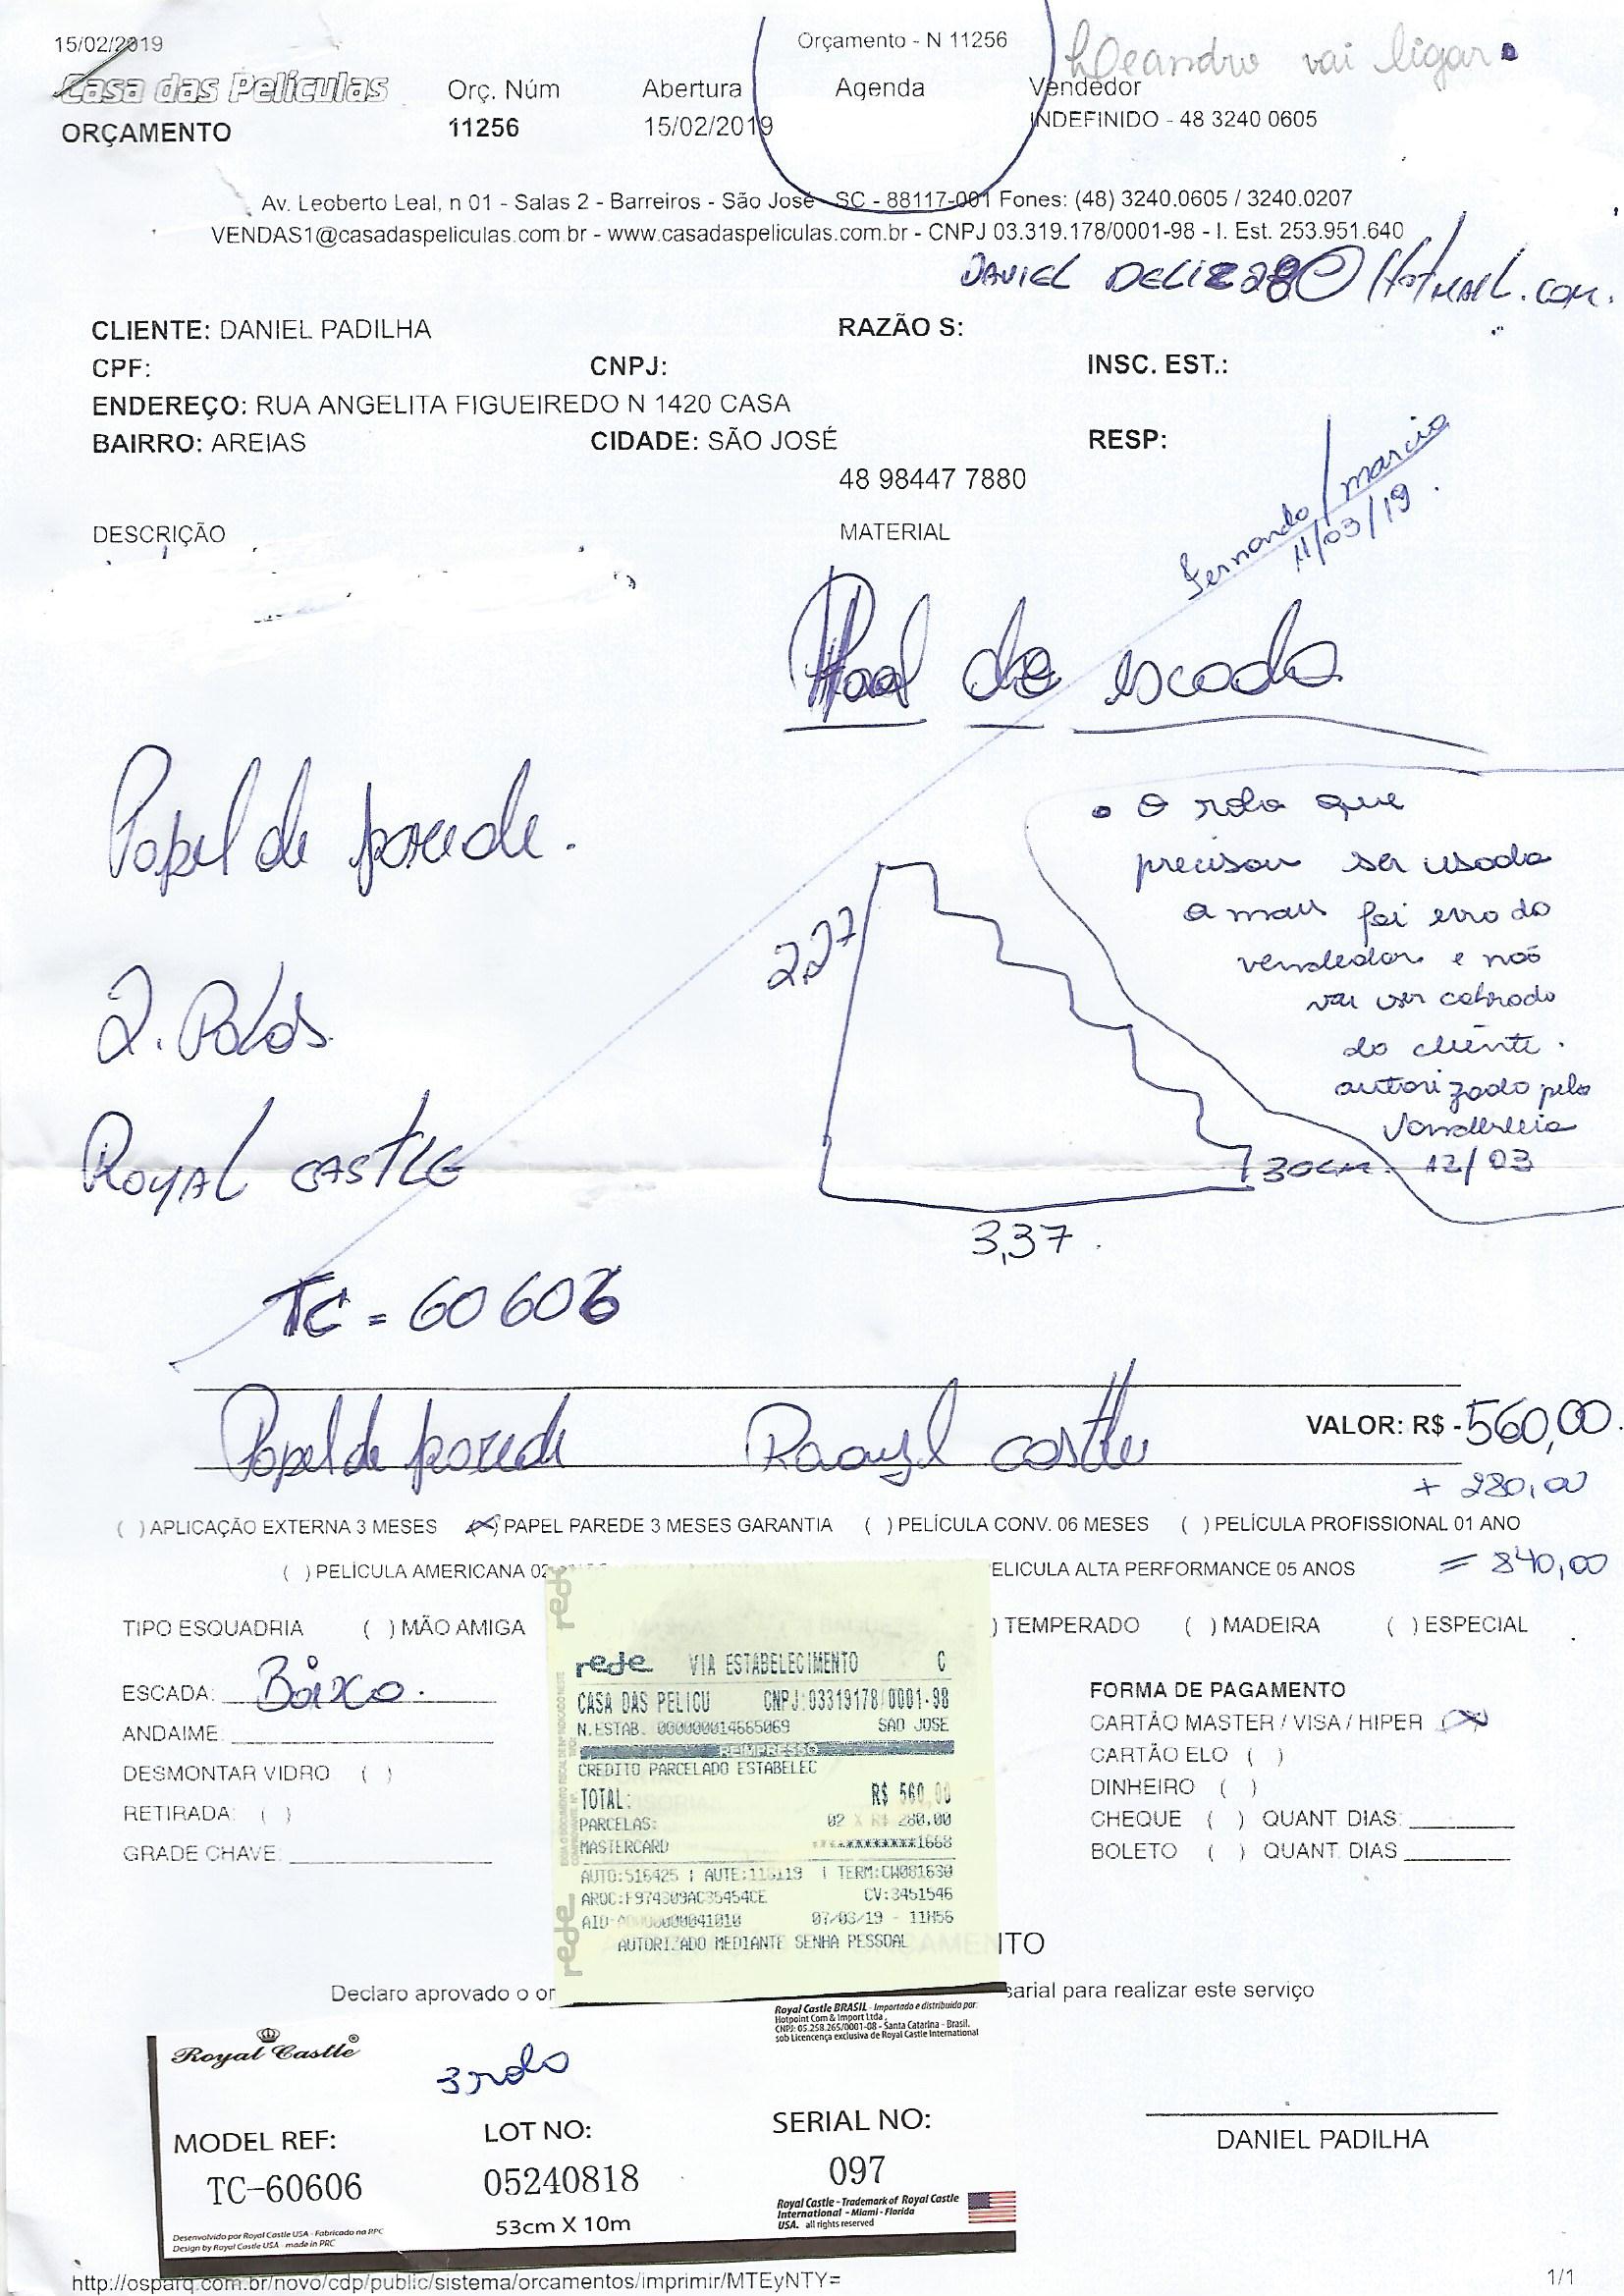 15/02/2019
Orçamento - N 11256
Leandro vai ligar
Casa das Películas
Orç. Núm
Abertura
Agenda
Vendedor
ORÇAMENTO
11256
15/02/2019
INDEFINIDO - 48 3240 0605
Av. Leoberto Leal, n 01 - Salas 2 - Barreiros - São José - SC - 88117-001 Fones: (48) 3240.0605 / 3240.0207
VENDAS1@casadaspeliculas.com.br - www.casadaspeliculas.com.br - CNPJ 03.319.178/0001-98 - I. Est. 253.951.640
DANIEL @HOTMAIL.COM.
CLIENTE: DANIEL PADILHA
RAZÃO S:
CPF:
CNPJ:
INSC. EST.:
ENDEREÇO: RUA ANGELITA FIGUEIREDO N 1420 CASA
BAIRRO: AREIAS
CIDADE: SÃO JOSÉ
RESP:
48 98447 7880
Fernando / marcio
11/03/19.
DESCRIÇÃO
MATERIAL
Hool da escada
Papel de parede.
• O rolo que
precisou ser usado
a mais foi erro do
vendedor e não
vai ser cobrado
do cliente.
autorizado pela
Vanderleia
12/03
2,27
2. Rolos
ROYAL CASTLE
30cm.
3,37.
TC = 60606
Papel de parede Raoyl castle
VALOR: R$ - 560,00.
+ 280,00
( ) APLICAÇÃO EXTERNA 3 MESES (X) PAPEL PAREDE 3 MESES GARANTIA ( ) PELÍCULA CONV. 06 MESES ( ) PELÍCULA PROFISSIONAL 01 ANO
( ) PELÍCULA AMERICANA 02
ELICULA ALTA PERFORMANCE 05 ANOS
= 840,00
TIPO ESQUADRIA ( ) MÃO AMIGA
) TEMPERADO ( ) MADEIRA ( ) ESPECIAL
ESCADA: Baixa.
ANDAIME:
DESMONTAR VIDRO ( )
RETIRADA: ( )
GRADE CHAVE:
rede VIA ESTABELECIMENTO C
CASA DAS PELICU CNPJ:03319178/0001-98
N.ESTAB. 000000014665069 SAO JOSE
REIMPRESSO
CREDITO PARCELADO ESTABELEC
TOTAL: R$ 560,00
PARCELAS: 02 X R$ 280,00
MASTERCARD ************1668
AUTO:516425 | AUTE:116119 | TERM:CW081630
ARQC:F974309AC35454CE CV:3451546
07/03/19 - 11H56
AUTORIZADO MEDIANTE SENHA PESSOAL
rede
rede
FORMA DE PAGAMENTO
CARTÃO MASTER / VISA / HIPER (X)
CARTÃO ELO ( )
DINHEIRO ( )
CHEQUE ( ) QUANT. DIAS:
BOLETO ( ) QUANT. DIAS
NTO
Declaro aprovado o or
sarial para realizar este serviço
Royal Castle®
3 rolo
Royal Castle BRASIL - Importado e distribuido por:
Hotpoint Com & Import Ltda,
CNPJ: 05.258.265/0001-08 - Santa Catarina - Brasil.
sob Licencença exclusiva de Royal Castle International
MODEL REF:
LOT NO:
SERIAL NO:
TC-60606
05240818
097
53cm X 10m
Royal Castle - Trademark of Royal Castle
International - Miami - Florida
USA. all rights reserved
Desenvolvido por Royal Castle USA - Fabricado na RPC
Design by Royal Castle USA - made in PRC
DANIEL PADILHA
http://osparq.com.br/novo/cdp/public/sistema/orcamentos/imprimir/MTEyNTY=
1/1